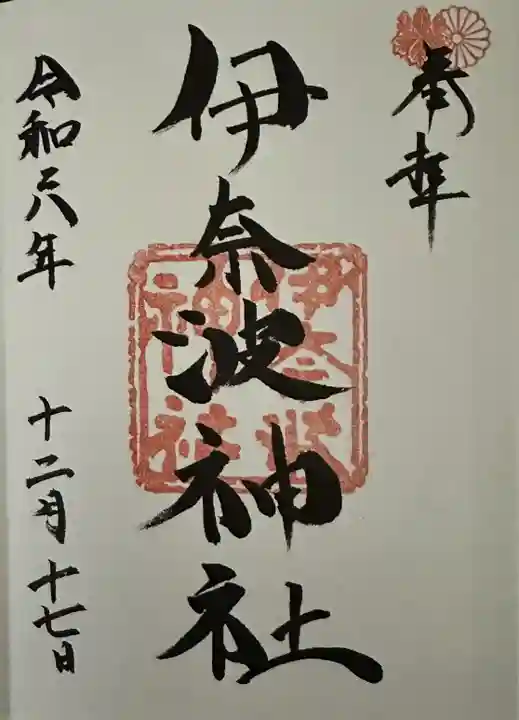 奉拝
伊奈波神社
伊奈波神社
令和六年 十二月十七日